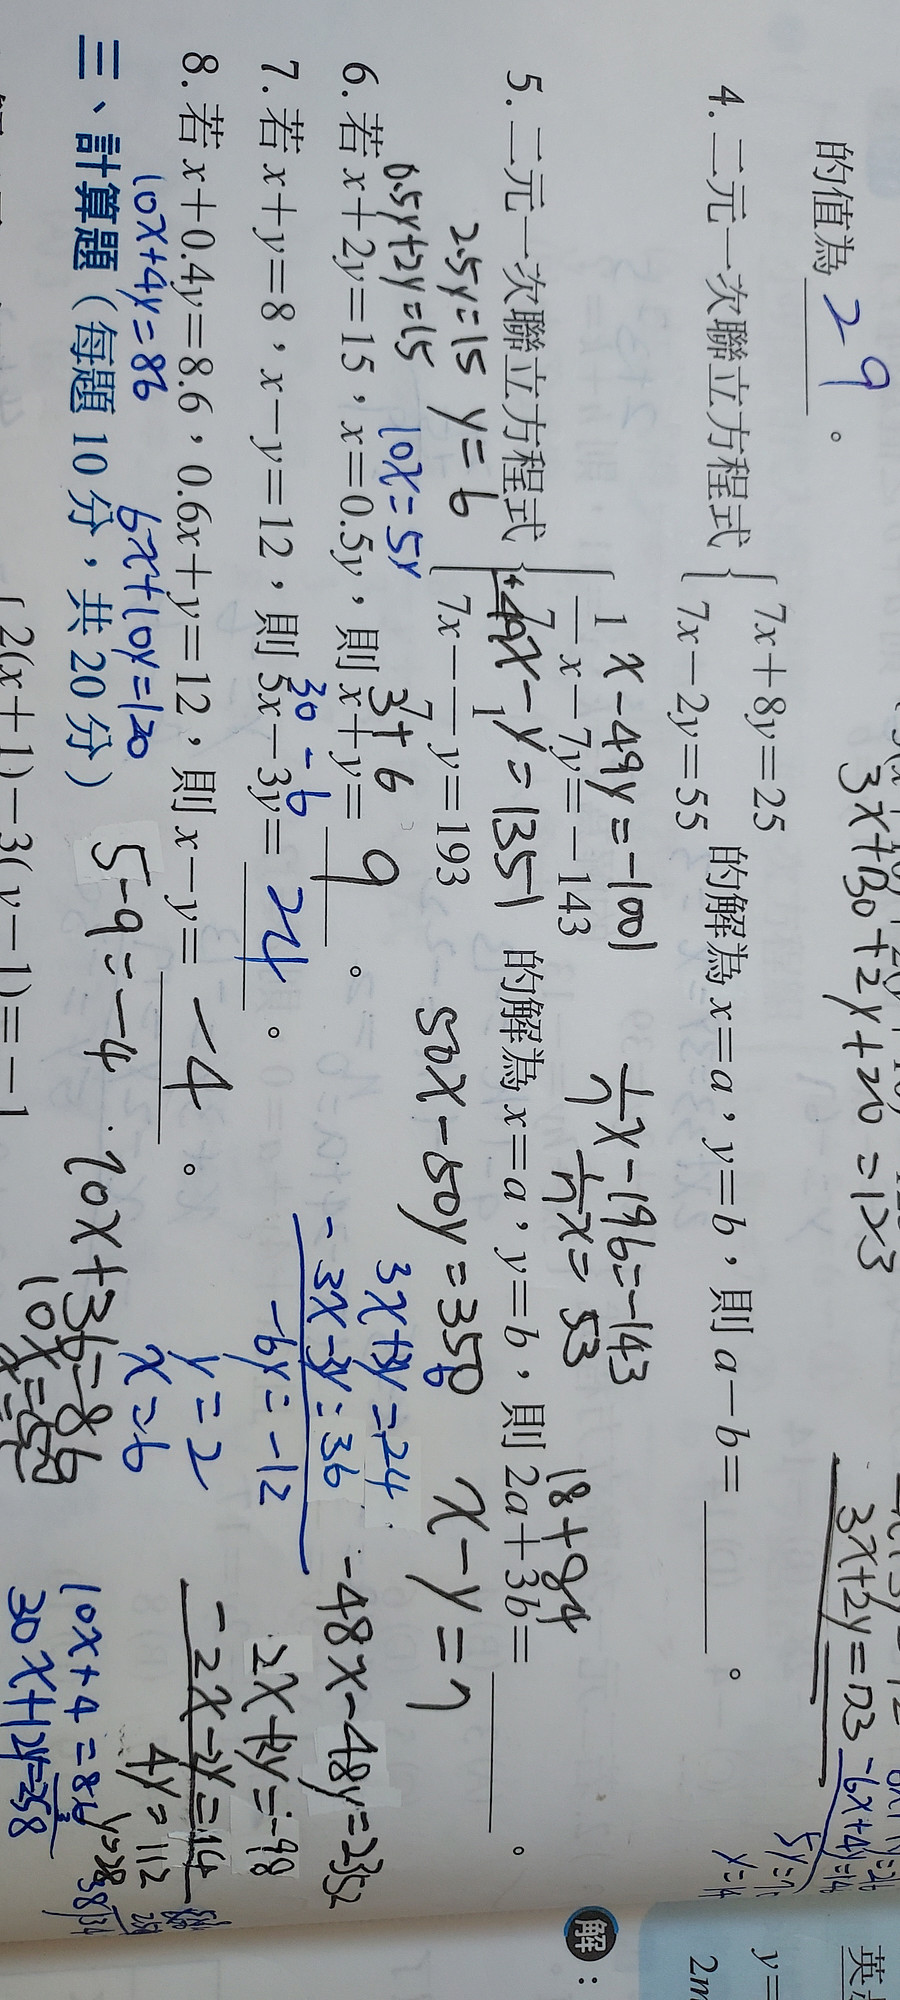 3x+130+2y+20=173
3x+2y=173
的值為 29 。
4. 二元一次聯立方程式 { 7x+8y=25
7x-2y=55 的解為 x=a,y=b,則 a-b= 。
x-49y=-1001
1/7x-196=-143
1/7x=53
5. 二元一次聯立方程式 { 1/7x-7y=-143
7x-1/7y=193 的解為 x=a,y=b,則 2a+3b= 。
49x-y=1351
18+84
2.5y=15 y=6
50x-50y=350
x-y=7
0.5y+2y=15 10x=5y
3+6
6. 若 x+2y=15,x=0.5y,則 x+y= 9 。
3x+3y=24
-3x-3y=36
-6y=-12
-48x-48y=2352
30-6
7. 若 x+y=8,x-y=12,則 5x-3y= 24 。
y=2
x=6
2x+2y=-98
-2x-2y=14
4y=112
8. 若 x+0.4y=8.6,0.6x+y=12,則 x-y= -4 。
10x+4y=86 6x+10y=120
5-9=-4
10x+36=86
10x=50
10x+4=86
30x+12y=258
三、計算題(每題 10 分,共 20 分)
2(x+1)-3(y-1)=-1
解:
y=
2m